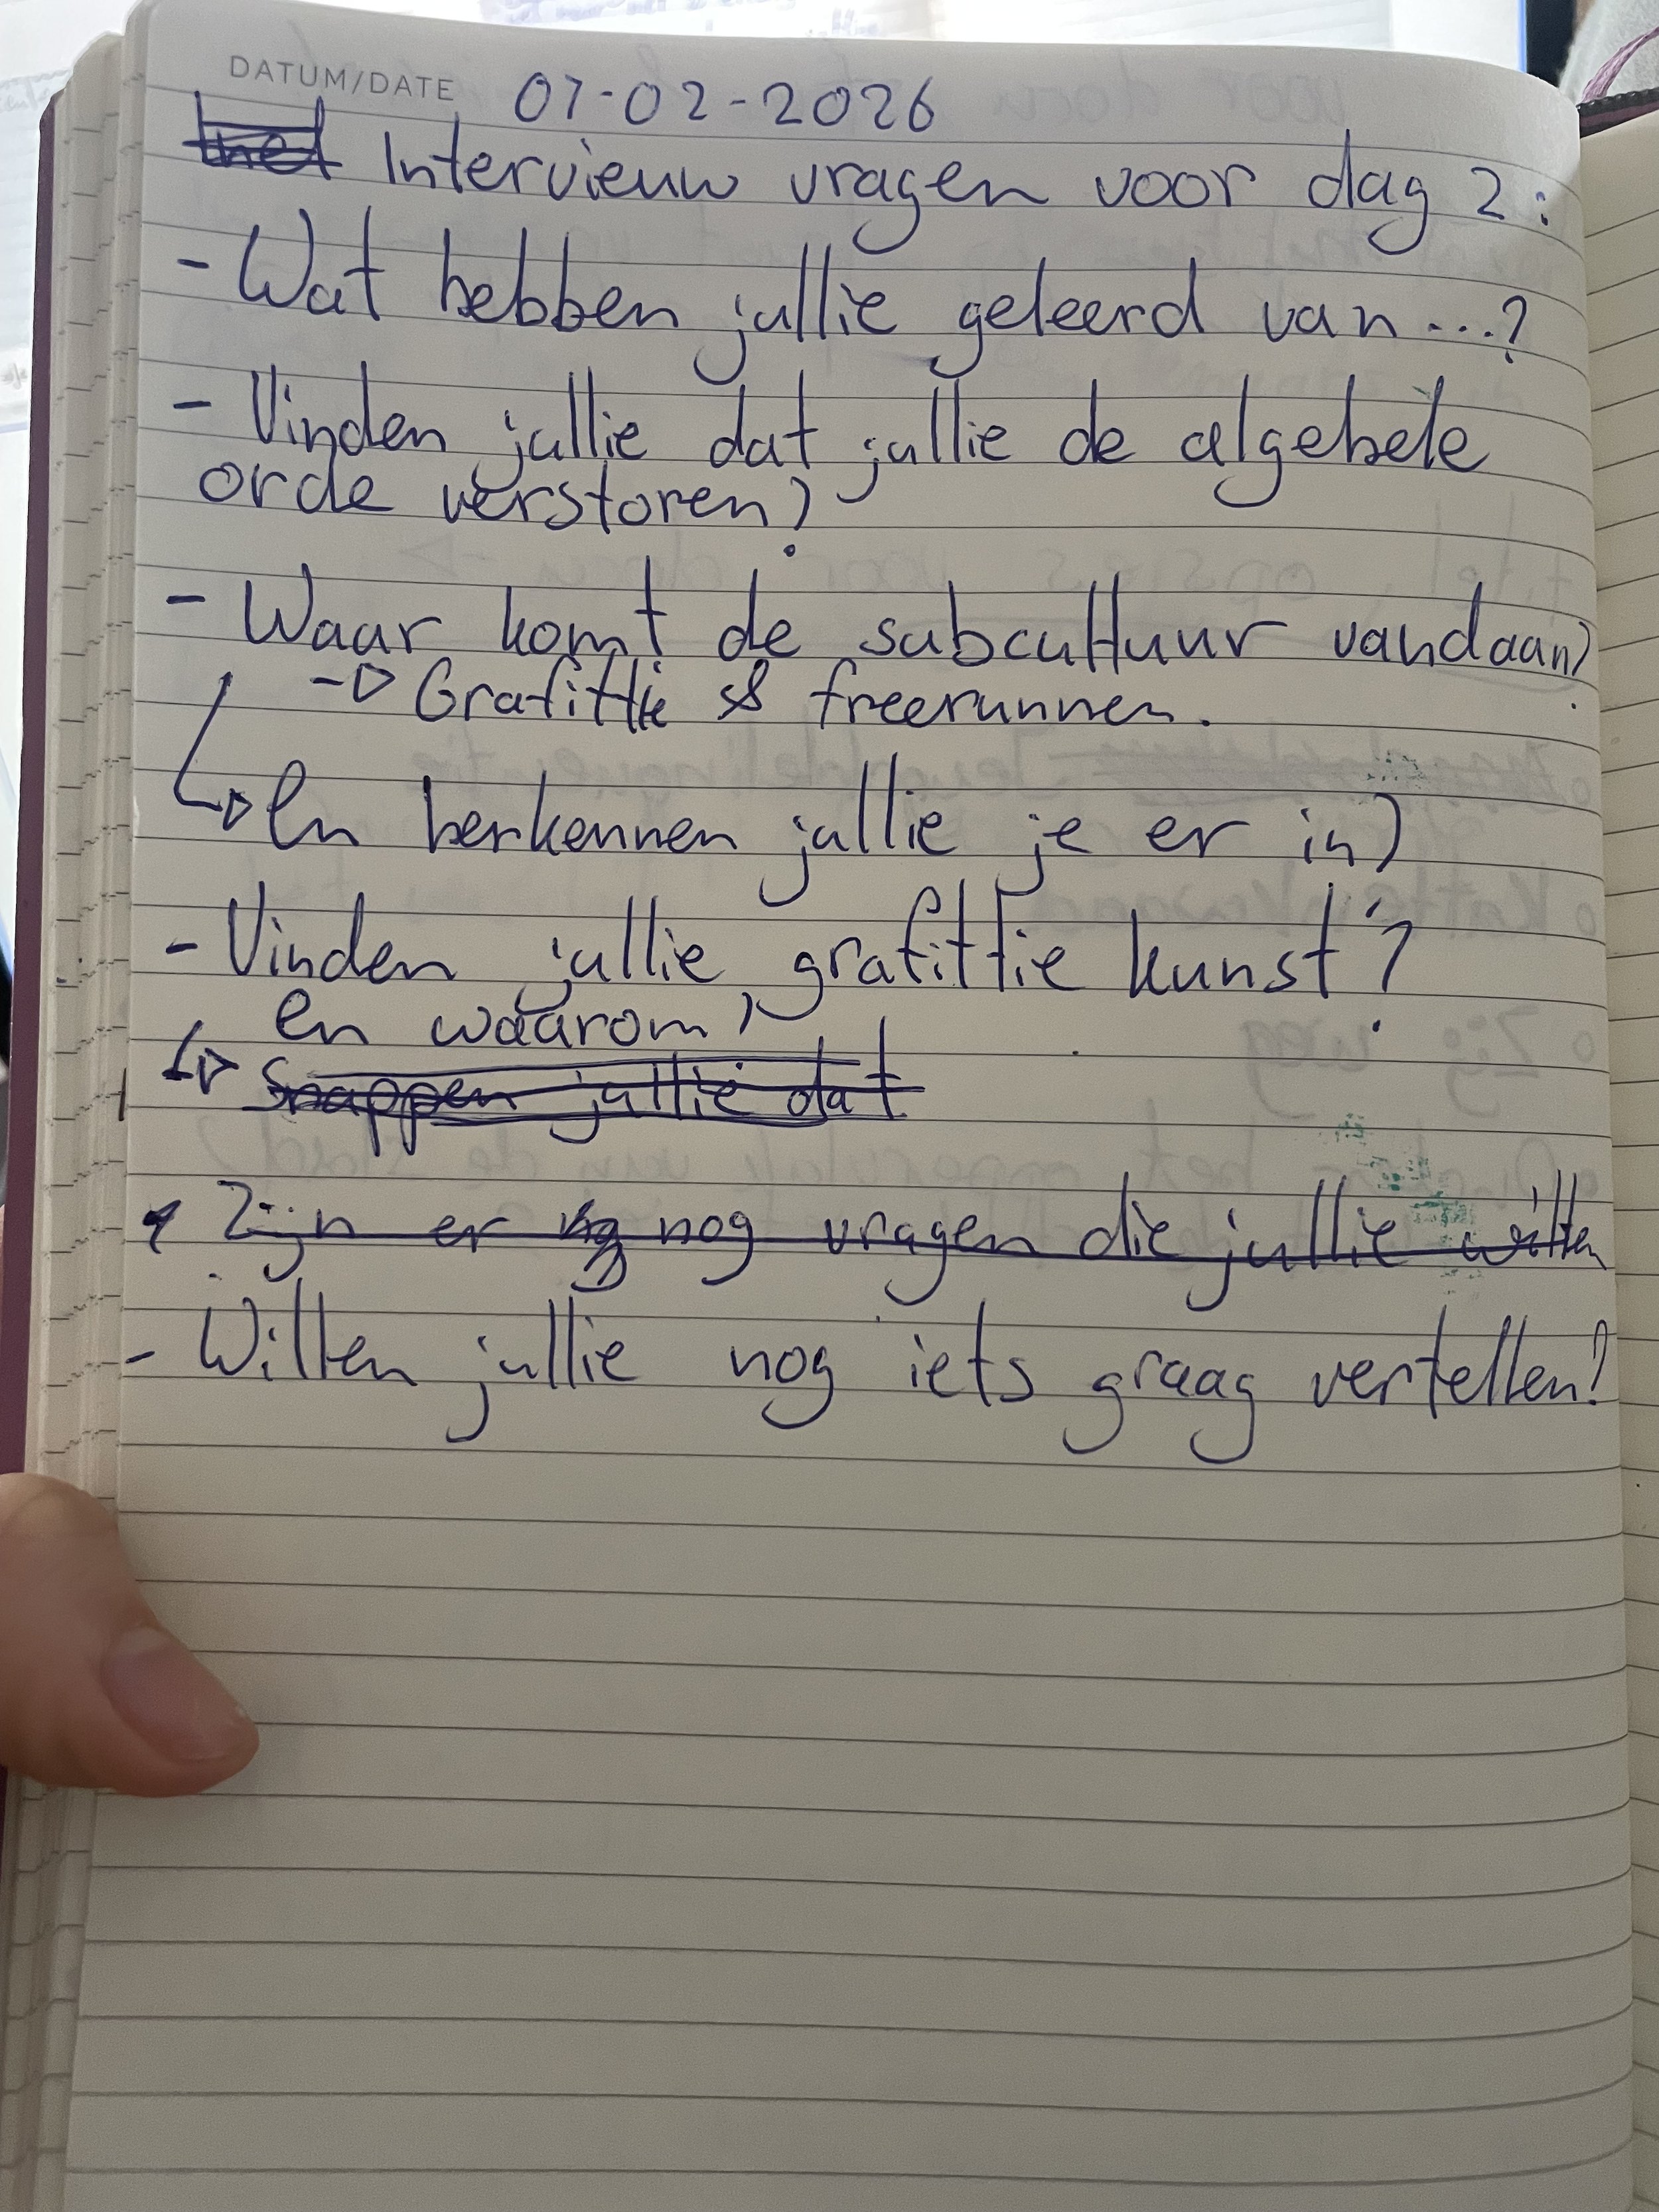 DATUM/DATE 07-02-2026
Intervieuw vragen voor dag 2:
- Wat hebben jullie geleerd van...?
- Vinden jullie dat jullie de algehele
orde verstoren?
- Waar komt de subcultuur vandaan?
-> Grafittie & freerunnen.
-> En herkennen jullie je er in?
- Vinden jullie grafittie kunst?
en waarom?
-> Snappen jullie dat
Zijn er nog vragen die jullie willen
- Willen jullie nog iets graag vertellen?